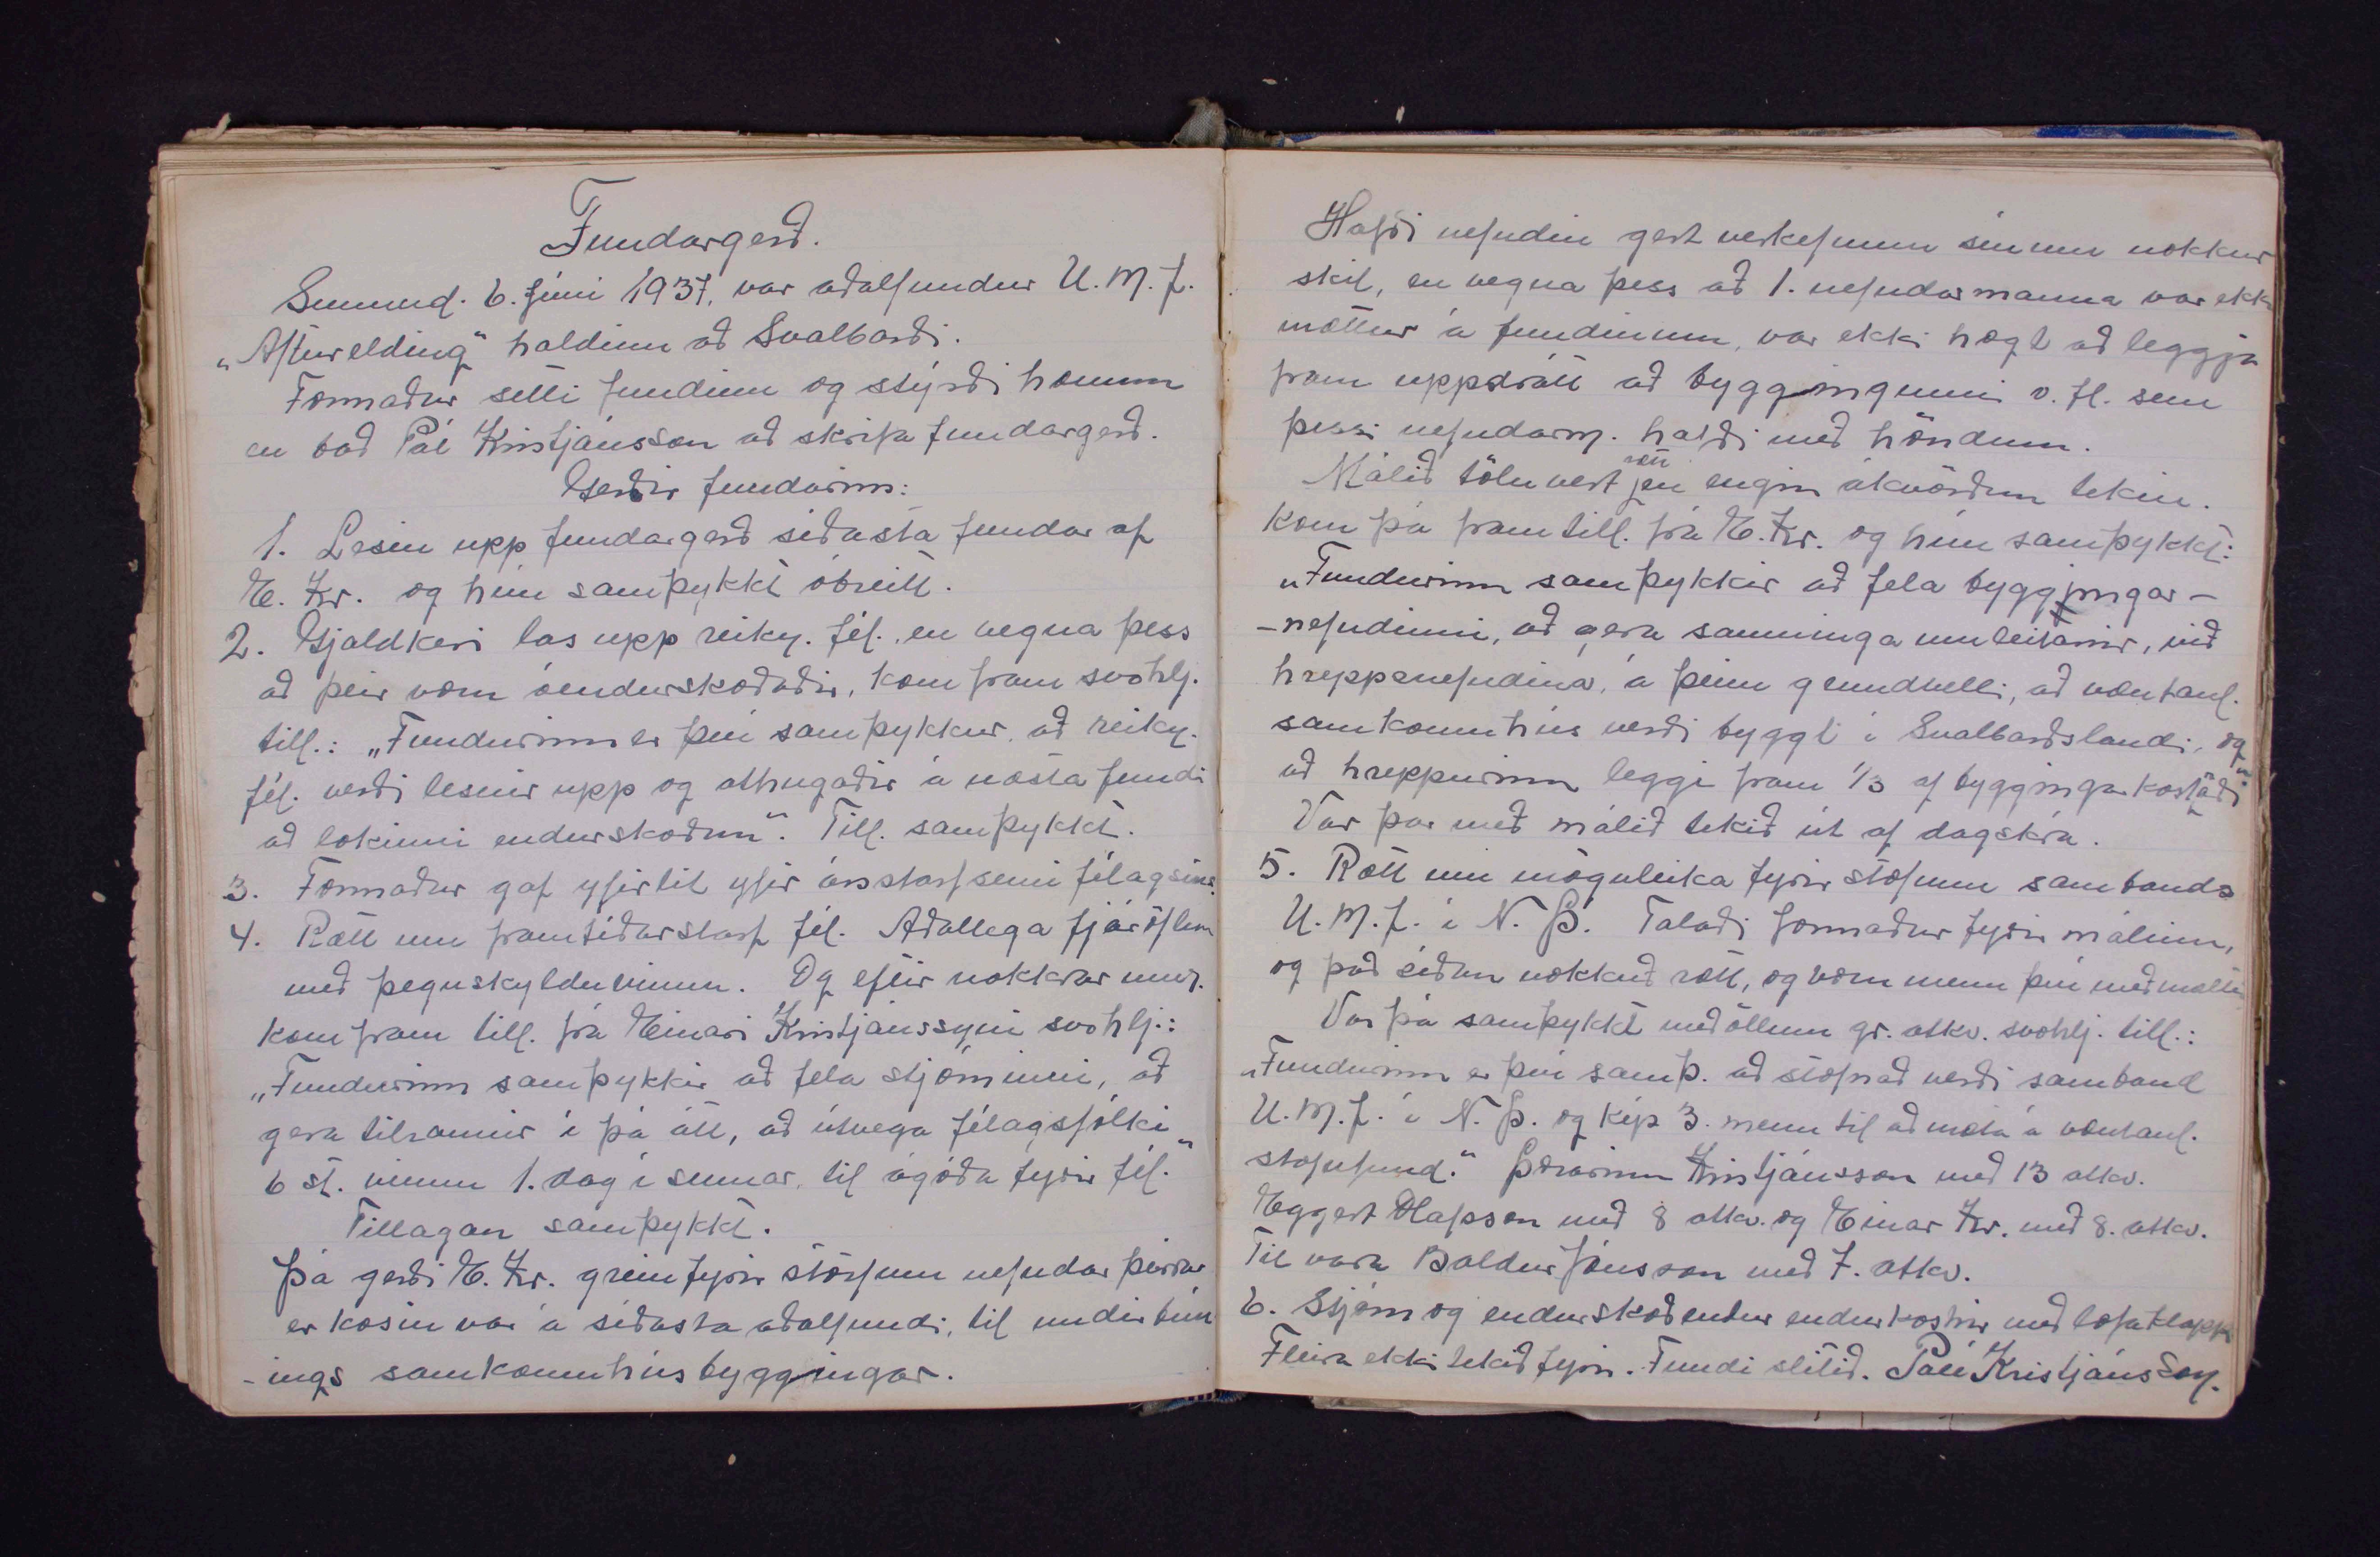 Fundargerð.
Sunnud. 6. júní 1937, var aðalfundur U.M.F.
„Afturelding" haldinn að Svalbarði.
Formaður setti fundinn og stýrði honum
en bað Pál Kristjánsson að skrifa fundargerð.
Gerðir fundarins:
1. Lesin upp fundargerð síðasta fundar af
E. Kr. og hún samþykkt óbreitt.
2. Gjaldkeri las upp reikn. fél. en vegna þess
að þeir voru óendurskoðaðir, kom fram svohlj.
till.: „Fundurinn er því samþykkur, að reikn.
fél. verði lesnir upp og athugaðir á næsta fundi
að lokinni endurskoðun". Till. samþykkt.
3. Formaður gaf yfirlit yfir ársstarfsemi félagsins.
4. Rætt um framtíðarstarf fél. Aðallega fjáröflun
með þegnskylduvinnu. Og eftir nokkrar umr.
kom fram till. frá Einari Kristjánssyni svohlj.:
„Fundurinn samþykkir að fela stjórninni, að
gera tilraunir í þá átt, að útvega félagsfólki
6 st. vinnu 1. dag í sumar, til ágóða fyrir fél."
Tillagan samþykkt.
Þá gerði E. Kr. grein fyrir störfum nefndar þeirrar
er kosin var á síðasta aðalfundi, til undirbún
-ings samkomuhúsbyggingar.
Hafði nefndin gert verkefnum sínum nokkur
skil, en vegna þess að 1. nefndarmanna var ekki
mættur á fundinum, var ekki hægt að leggja
fram uppdrátt að byggingunni o. fl. sem
þessi nefndarm. hafði með höndum.
Málið töluvert rætt, en engin ákvörðun tekin.
Kom þá fram till. frá E. Kr. og hún samþykkt:
„Fundurinn samþykkir að fela byggingar-
-nefndinni, að gera samninga umleitanir, við
hreppsnefndina, á þeim grundvelli, að væntanl.
samkomuhús verði byggt í Svalbarðslandi, og
að hreppurinn leggi fram 1/3 af byggingarkostnaði"
Var þar með málið tekið út af dagskrá.
5. Rætt um möguleika fyrir stofnun sambands
U.M.F. í N. Þ. Talaði formaður fyrir málinu,
og það síðan nokkuð rætt, og voru menn því meðmæltir
Var þá samþykkt með öllum gr. atkv. svohlj. till.:
„Fundurinn er því samþ. að stofnað verði samband
U.M.F. í N. Þ. og kýs 3. menn til að mæta á væntanl.
stofnfund." Þórarinn Kristjánsson með 13 atkv.
Eggert Ólafsson með 8 atkv. og Einar Kr. með 8. atkv.
Til vara Baldur Jónsson með 7. atkv.
6. Stjórn og endurskoðendur endurkosnir með lófaklappi
Fleira ekki tekið fyrir. Fundi slitið. Páll Kristjánsson.